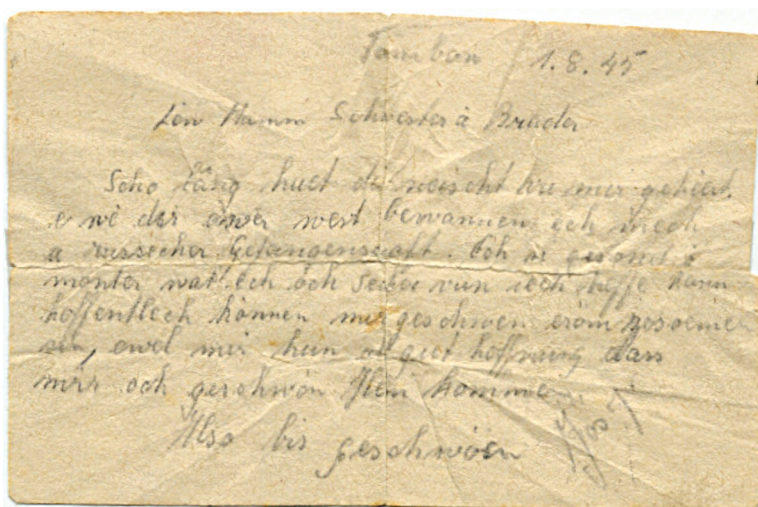 Tambow 1.8.45
Schwester a Brudder
Scho lång huet dir neischt vu mir gehéiert
wé dir awer west bewannen ech mech
a russecher Gefangenschaft. Ech si gesond a
monter wat ech och sécher vun iech hoffe kann
hoffentlech können mir geschwen erom zesoemen
sin, ewel mir hun vl gut hoffnung dass
mir och geschwön Hém komme.
Also bis geschwöen
Josy